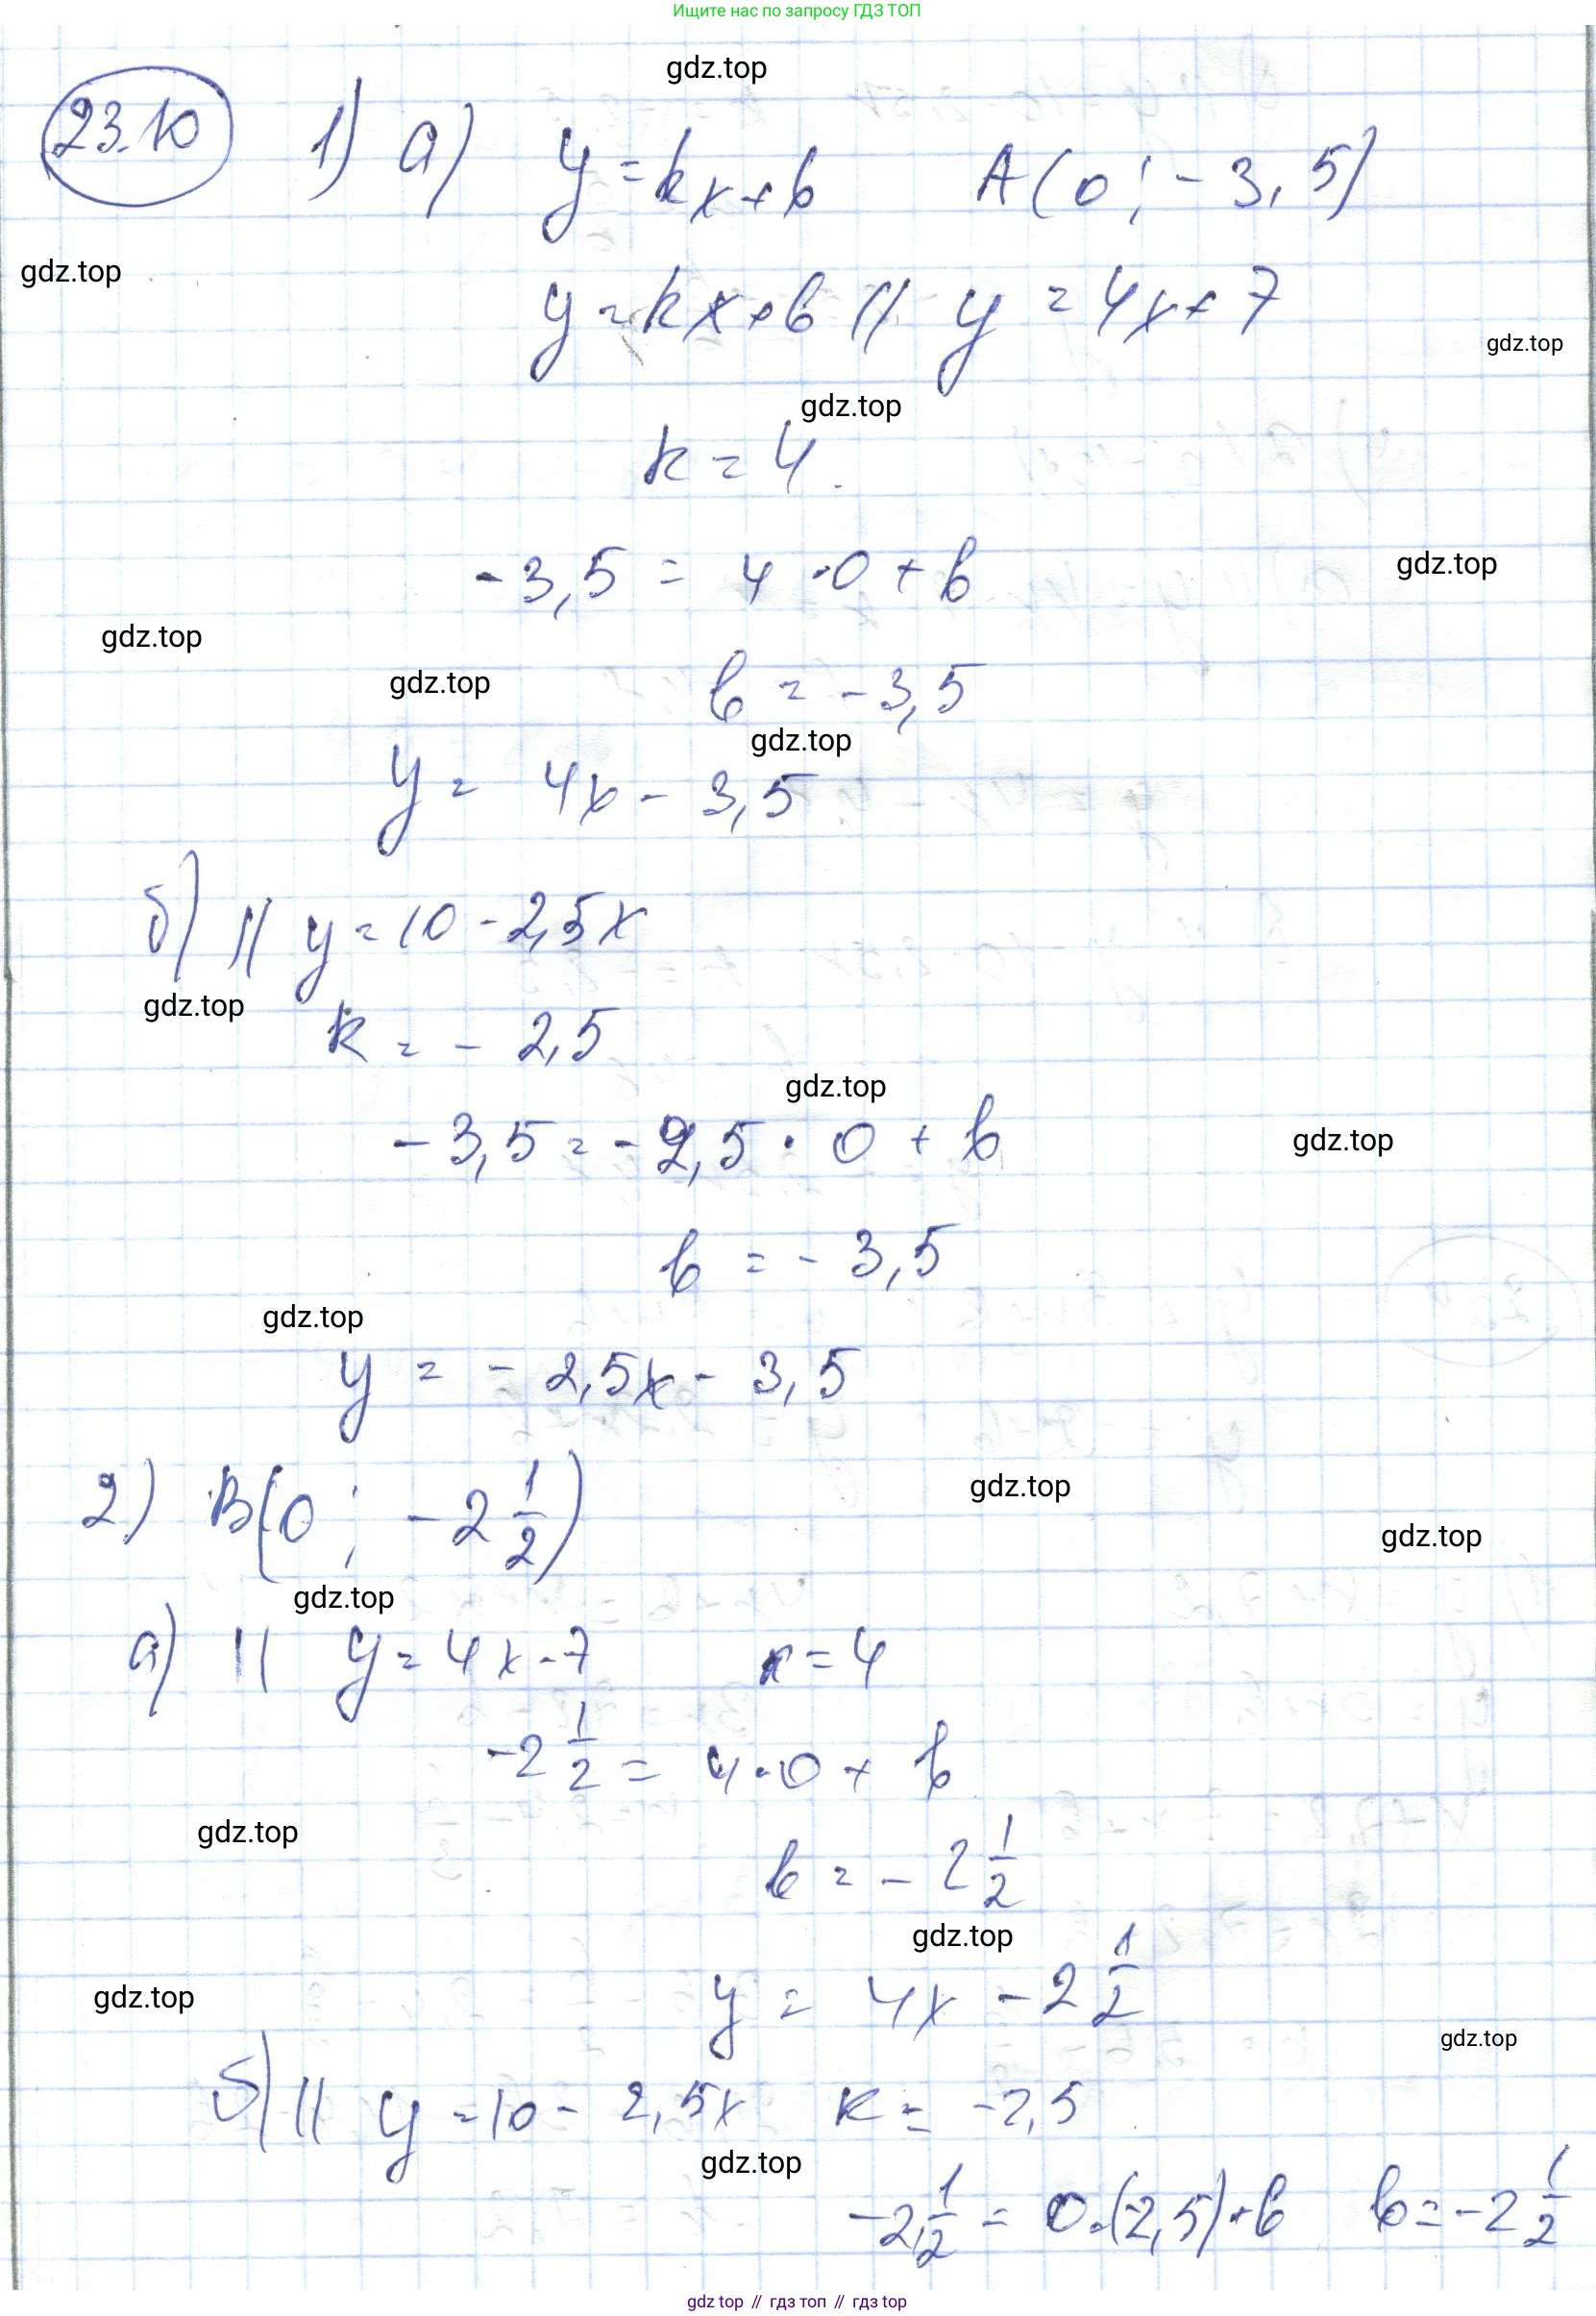 Ищите нас по запросу ГДЗ ТОП
gdz.top
23.10 1) а) y = kx + b A(0; -3,5)
gdz.top
y = kx + b || y = 4x + 7
gdz.top
gdz.top
k = 4.
-3,5 = 4 · 0 + b
gdz.top
gdz.top
gdz.top
b = -3,5
gdz.top
y = 4x - 3,5
б) || y = 10 - 2,5x
gdz.top
k = - 2,5
gdz.top
-3,5 = -2,5 · 0 + b
gdz.top
b = - 3,5
gdz.top
y = - 2,5x - 3,5
2) B(0; -2 1/2)
gdz.top
gdz.top
gdz.top
а) || y = 4x - 7 к = 4
-2 1/2 = 4 · 0 + b
gdz.top
b = - 2 1/2
gdz.top
gdz.top
y = 4x - 2 1/2
gdz.top
б) || y = 10 - 2,5x к = -2,5
gdz.top
-2 1/2 = 0 · (-2,5) + b b = -2 1/2
gdz top // гдз топ // гдз top